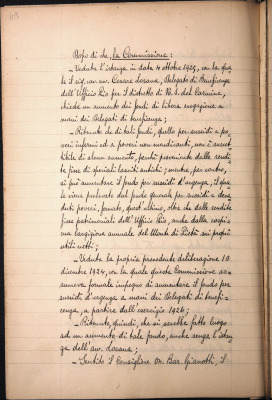 Dopo di che, la Commissione:
- Veduta l'istanza in data 4 ottobre 1925, con la qua
le il sig. cav. avv. Cesare Losana, Delegato di Beneficenza
dell'Ufficio Pio per il distretto di N. S. del Carmine,
chiede un aumento dei fondi di libera erogazione a
mani dei Delegati di beneficenza;
- Ritenuto che di tali fondi, quello per sussidi a po
veri infermi ed a poveri non mendicanti, non è suscet
tibile di alcun aumento, perché proveniente dalle rendi
te fisse di speciali lasciti antichi; mentre, per contro,
si può aumentare il fondo per sussidi d'urgenza, il qua
le viene prelevato dal fondo generale per sussidi a dena
ti poveri, formato, quest'ultimo, oltre che dalle rendite
fisse patrimoniali dell'Ufficio Pio, anche dalla cospicu
a largizione annuale del Monte di Pietà sui propri
utili netti;
- Veduta la propria precedente deliberazione 10
dicembre 1924, con la quale questa Commissione as
sumeva formale impegno di aumentare il fondo per
sussidi d'urgenza a mani dei Delegati di benefi-
cenza, a partire dall'esercizio 1926;
- Ritenuto, quindi, che si sarebbe fatto luogo
ad un aumento di tale fondo, anche senza l'istan
za dell'avv. Losana;
- Sentito il Consigliere On. Bar. Gianotti, il